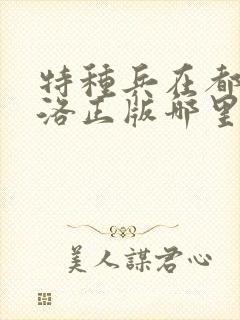 特種兵在都
洛正版哪里
美人謀君心